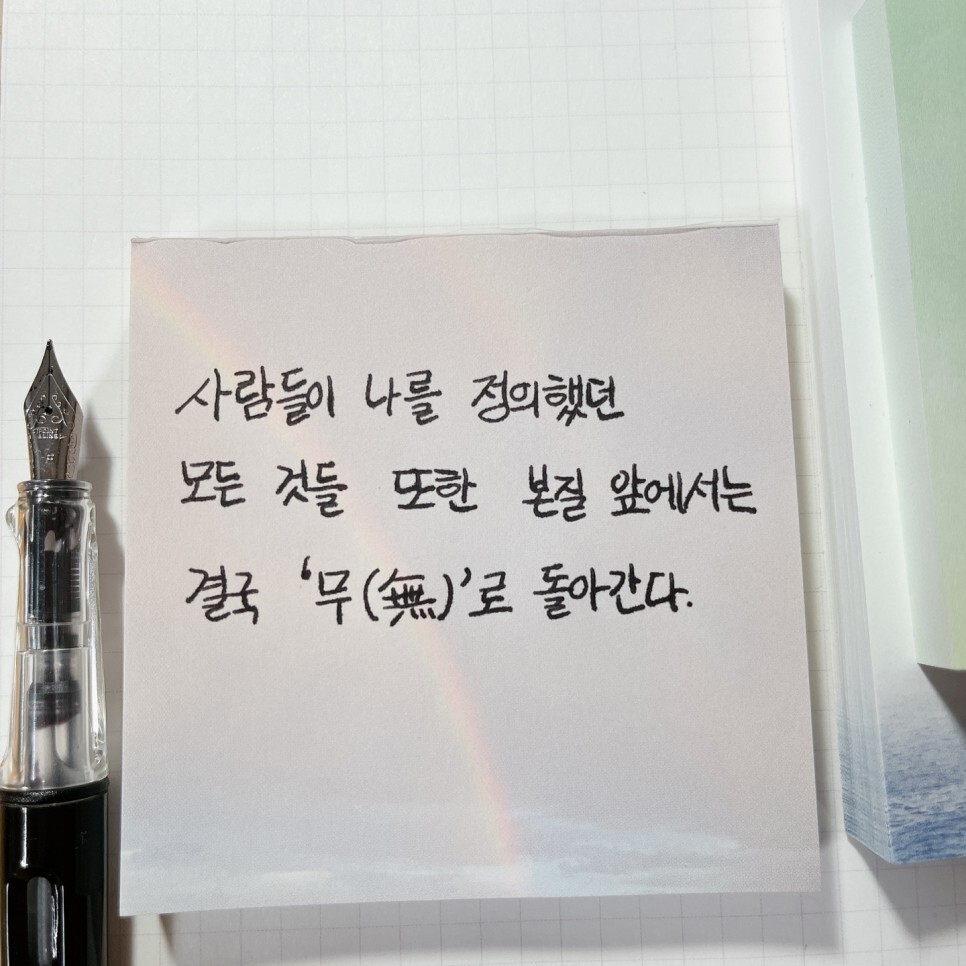 사람들이 나를 정의했던
모든 것들 또한 본질 앞에서는
결국 '무(無)'로 돌아간다.